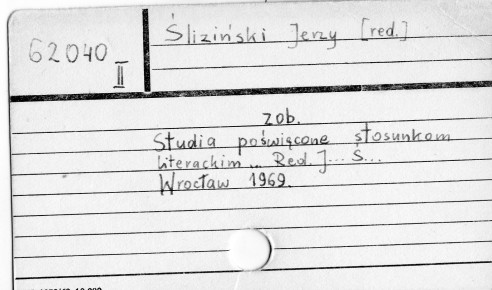 Śliziński Jerzy [red.]
62040
II
zob.
Studia poświęcone stosunkom
literackim ... Red. J... Ś...
Wrocław 1969.